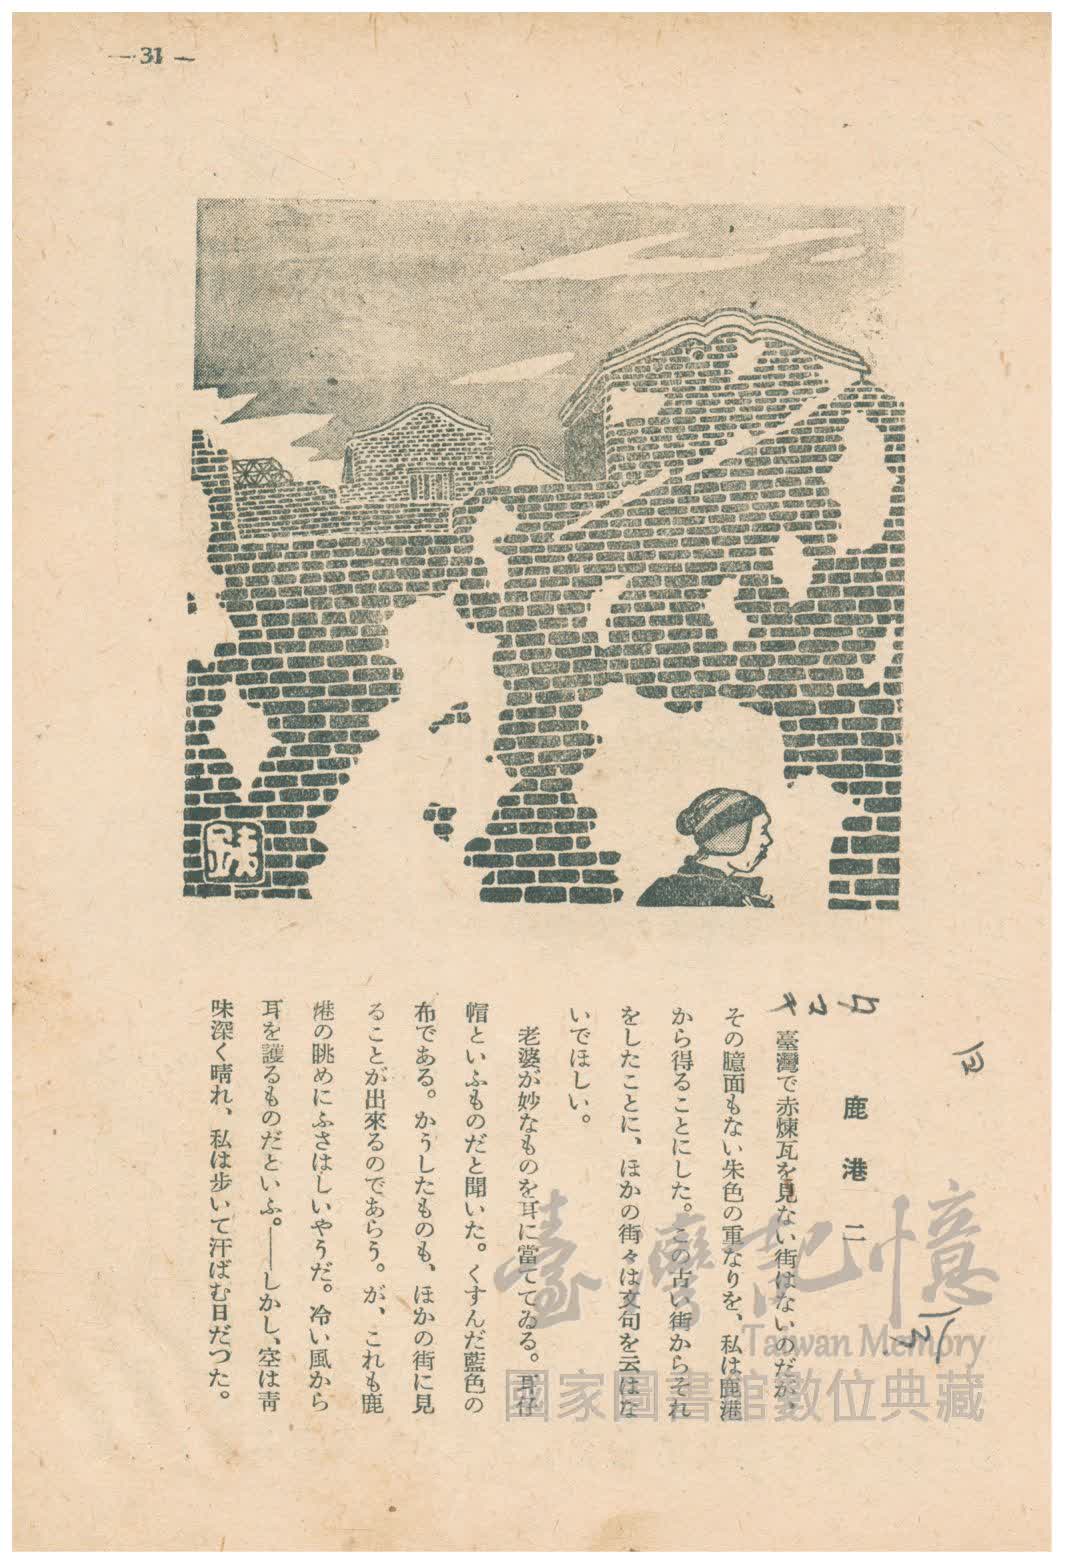 — 31 —
鹿港 二
臺灣で赤煉瓦を見ない街はないのだが、
その臆面もない朱色の重なりを、私は鹿港
から得ることにした。この古い街からそれ
をしたことに、ほかの街々は文句を云はな
いでほしい。
老婆が妙なものを耳に當ててゐる。耳仔
帽といふものだと聞いた。くすんだ藍色の
布である。かうしたものも、ほかの街に見
ることが出來るのであらう。が、これも鹿
港の眺めにふさはしいやうだ。冷い風から
耳を護るものだといふ。——しかし、空は靑
味深く晴れ、私は步いて汗ばむ日だつた。
臺灣記憶
Taiwan Memory
國家圖書館數位典藏